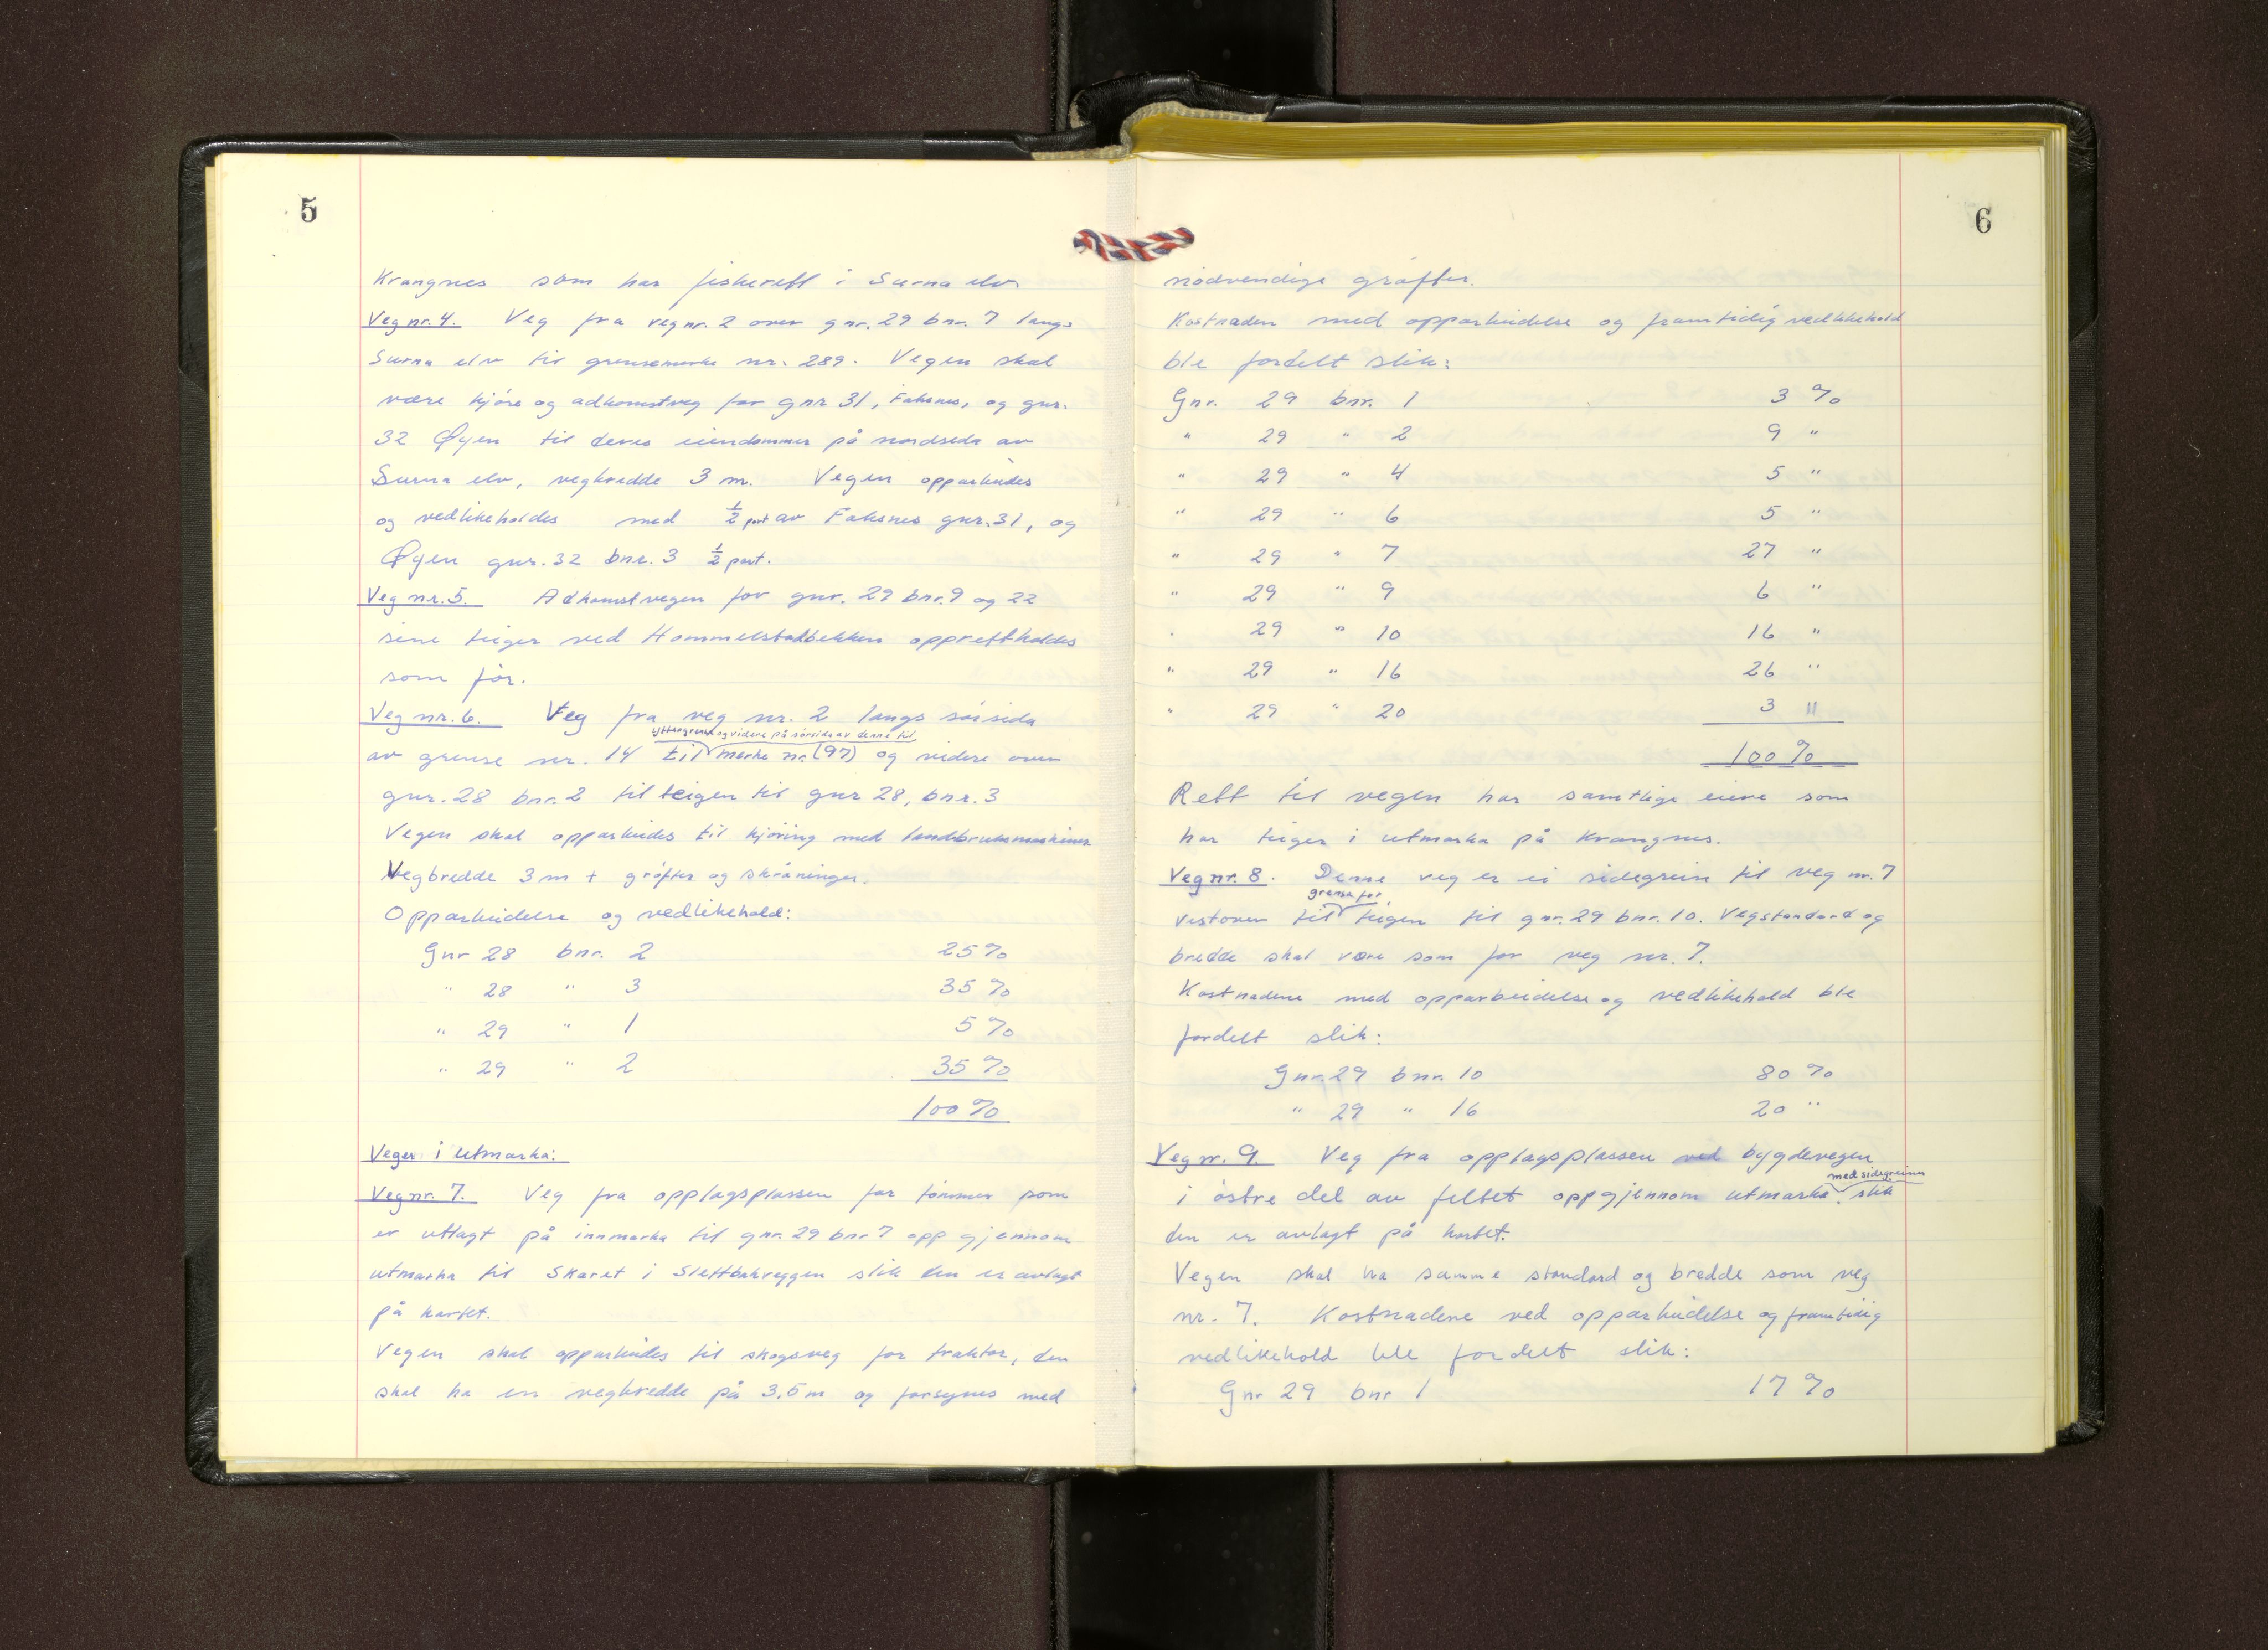 5
Krangnes som har fiskerett i Surna elv
Veg nr. 4. Veg fra veg nr. 2 over gnr. 29 bnr. 7 langs
Surna elv til grensemerke nr. 289. Vegen skal
være kjøre og adkomstveg for gnr 31, Faksnes, og gnr.
32 Øyen til deres eiendommer på nordsida av
Surna elv, vegbredde 3 m. Vegen opparbeides
og vedlikeholdes med ½ part av Faksnes gnr. 31, og
Øyen gnr. 32 bnr. 3 ½ part.
Veg nr. 5. Adkomstvegen for gnr. 29 bnr. 9 og 22
sine teiger ved Hommelstadbekken opprettholdes
som før.
Veg nr. 6. Veg fra veg nr. 2 langs sørsida
yttergrense og videre på sørsida av denne til
av grense nr. 14 til merke nr. (97) og videre over
gnr. 28 bnr. 2 til teigen til gnr 28, bnr. 3
Vegen skal opparbeides til kjøring med landsbruksmaskiner.
Vegbredde 3 m + grøfter og skråninger.
Opparbeidelse og vedlikehold:
Gnr 28 bnr. 2 25%
" 28 " 3 35%
" 29 " 1 5%
" 29 " 2 35%
100%
Veger i utmarka:
Veg nr. 7. Veg fra opplagsplassen for tømmer som
er utlagt på innmarka til gnr. 29 bnr 7 opp gjennom
utmarka til Skaret i Slettbakveggen slik den er avlagt
på kartet.
Vegen skal opparbeides til skogsveg for traktor, den
skal ha en vegbredde på 3,5 m og forsynes med
6
nødvendige grøfter.
Kostnaden med opparbeidelse og framtidig vedlikehold
ble fordelt slik:
Gnr. 29 bnr. 1 3 %
" 29 " 2 9 "
" 29 " 4 5 "
" 29 " 6 5 "
" 29 " 7 27 "
" 29 " 9 6 "
" 29 " 10 16 "
" 29 " 16 26 "
" 29 " 20 3 "
100 %
Rett til vegen har samtlige eiere som
har teiger i utmarka på Krangnes.
Veg nr. 8. Denne veg er ei sidegrein til veg nr. 7
grensa for
vestover til teigen til gnr. 29 bnr. 10. Vegstandard og
bredde skal være som for veg nr. 7.
Kostnadene med opparbeidelse og vedlikehold ble
fordelt slik:
Gnr. 29 bnr. 10 80 %
" 29 " 16 20 "
Veg nr. 9. Veg fra opplagsplassen ved bygdevegen
med sidegreiner
i østre del av feltet oppgjennom utmarka slik
den er avlagt på kartet.
Vegen skal ha samme standard og bredde som veg
nr. 7. Kostnadene ved opparbeidelse og framtidig
vedlikehold ble fordelt slik:
Gnr 29 bnr 1 17 %